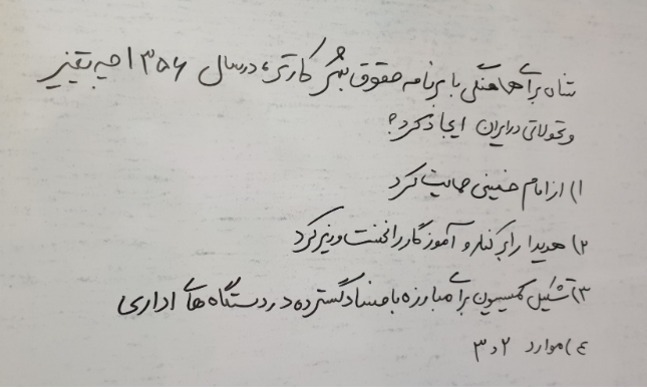 شاه برای هماهنگی با برنامه حقوق بشر کارتر، در سال ۱۳۵۶ چه تغییر
و تحولاتی در ایران ایجاد کرد؟
۱) از امام خمینی حمایت کرد
۲) هویدا را برکنار و آموزگار را نخست وزیر کرد
۳) تشکیل کمیسیون برای مبارزه با فساد گسترده در دستگاه های اداری
۴) موارد ۲ و ۳